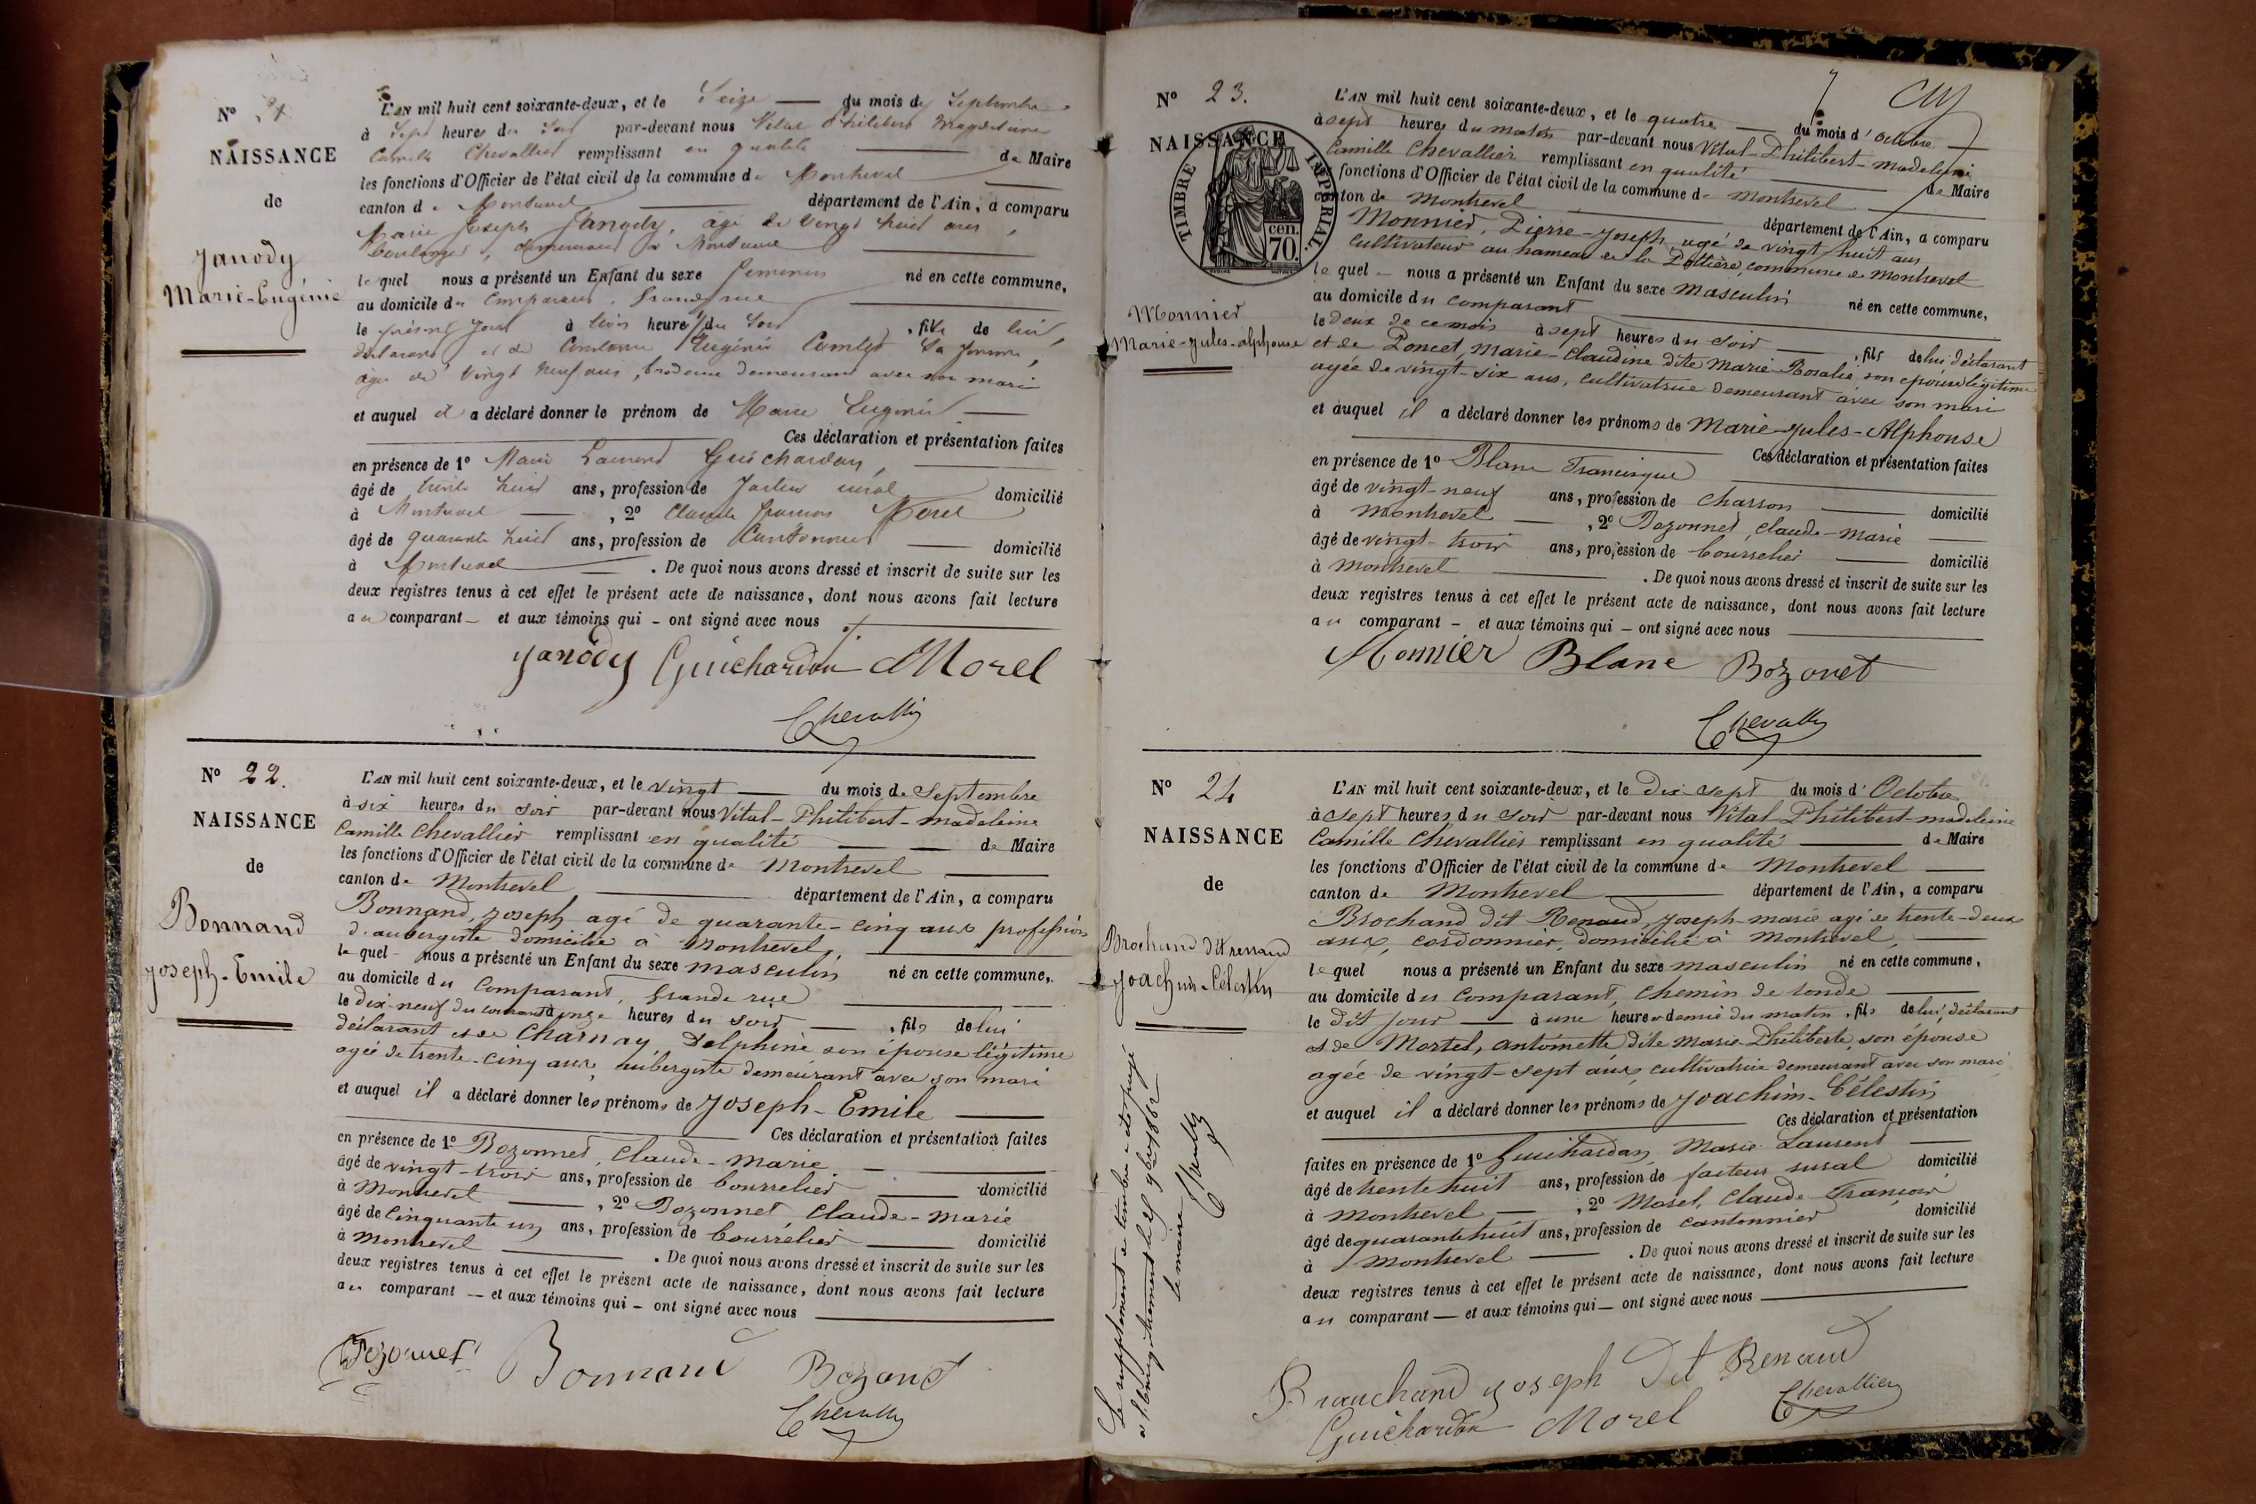 N° 21
NAISSANCE
de
Janody
Marie-Eugénie
L'AN mil huit cent soixante-deux, et le Seize du mois de Septembre
à Sept heures du soir par-devant nous Vital Philibert Magdeleine
Camille Chevallier remplissant en qualité de Maire
les fonctions d'Officier de l'état civil de la commune de Montrevel
canton de Montrevel département de l'Ain, a comparu
Marie Joseph Janody, âgé de vingt huit ans,
boulanger, demeurant à Montrevel
lequel nous a présenté un Enfant du sexe féminin né en cette commune,
au domicile du comparant, Grande rue
le présent jour à trois heures du soir, fille de lui
déclarant et de Constance Eugénie sa femme,
âgée de vingt neuf ans, brodeuse demeurant avec son mari
et auquel il a déclaré donner le prénom de Marie Eugénie
Ces déclaration et présentation faites
en présence de 1° Marie Laurent Guichardan,
âgé de trente huit ans, profession de facteur rural domicilié
à Montrevel, 2° Claude François Morel
âgé de quarante huit ans, profession de Cantonnier domicilié
à Montrevel. De quoi nous avons dressé et inscrit de suite sur les
deux registres tenus à cet effet le présent acte de naissance, dont nous avons fait lecture
au comparant et aux témoins qui ont signé avec nous
Janody Guichardan Morel
Chevallier
N° 22.
NAISSANCE
de
Bonnand
Joseph-Emile
L'AN mil huit cent soixante-deux, et le vingt du mois de Septembre
à six heures du soir par-devant nous Vital-Philibert-Madeleine
Camille Chevallier remplissant en qualité de Maire
les fonctions d'Officier de l'état civil de la commune de Montrevel
canton de Montrevel département de l'Ain, a comparu
Bonnand, Joseph agé de quarante-cinq ans profession
d'aubergiste domicilié à Montrevel,
lequel nous a présenté un Enfant du sexe masculin né en cette commune,
au domicile du Comparant, Grande rue
le dix-neuf du courant à onze heures du soir, fils de lui
déclarant et de Charnay Delphine son épouse légitime
agée de trente-cinq ans, aubergiste demeurant avec son mari
et auquel il a déclaré donner les prénoms de Joseph-Emile
Ces déclaration et présentation faites
en présence de 1° Bozonnet, Claude-Marie
âgé de vingt-trois ans, profession de bourrelier domicilié
à Montrevel, 2° Bozonnet, Claude-Marie
âgé de Cinquante un ans, profession de bourrelier domicilié
à Montrevel. De quoi nous avons dressé et inscrit de suite sur les
deux registres tenus à cet effet le présent acte de naissance, dont nous avons fait lecture
au comparant et aux témoins qui ont signé avec nous
Bozonnet Bonnand Bozonet
Chevallier
N° 23.
NAISSANCE
TIMBRE IMPÉRIAL.
70. cen.
Monnier
Marie-Jules-Alphonse
L'AN mil huit cent soixante-deux, et le quatre du mois d'octobre
à sept heures du matin par-devant nous Vital-Philibert-Madeleine
Camille Chevallier remplissant en qualité de Maire
fonctions d'Officier de l'état civil de la commune de Montrevel
canton de Montrevel département de l'Ain, a comparu
Monnier, Pierre-Joseph agé de vingt huit ans
cultivateur au hameau de la commune de Montrevel
lequel nous a présenté un Enfant du sexe masculin né en cette commune,
au domicile du comparant
le deux de ce mois à sept heures du soir, fils de lui déclarant
et de Poncet, Marie-Claudine dite Marie Rosalie, son épouse légitime
agée de vingt-six ans, cultivatrice demeurant avec son mari
et auquel il a déclaré donner les prénoms de Marie-Jules-Alphonse
Ces déclaration et présentation faites
en présence de 1° Blanc Francisque
âgé de vingt-neuf ans, profession de charron domicilié
à Montrevel, 2° Bozonnet, Claude-Marie
âgé de vingt-trois ans, profession de bourrelier domicilié
à Montrevel. De quoi nous avons dressé et inscrit de suite sur les
deux registres tenus à cet effet le présent acte de naissance, dont nous avons fait lecture
au comparant et aux témoins qui ont signé avec nous
Monnier Blanc Bozonet
Chevallier
N° 24
NAISSANCE
de
Brochand dit renaud
Joachim-Célestin
L'AN mil huit cent soixante-deux, et le dix sept du mois d'Octobre
à sept heures du soir par-devant nous Vital Philibert-Madeleine
Camille Chevallier remplissant en qualité de Maire
les fonctions d'Officier de l'état civil de la commune de Montrevel
canton de Montrevel département de l'Ain, a comparu
Brochand dit Renaud, Joseph-Marie agé de trente-deux
ans, cordonnier, domicilié à Montrevel,
lequel nous a présenté un Enfant du sexe masculin né en cette commune,
au domicile du Comparant, Chemin de ronde
le dit jour à une heure demie du matin, fils de lui, déclarant
et de Mortel, Antoinette dite Marie Philiberte, son épouse
agée de vingt-sept ans, cultivatrice demeurant avec son mari
et auquel il a déclaré donner les prénoms de Joachim-Célestin
Ces déclaration et présentation
faites en présence de 1° Guichardan, Marie Laurent
âgé de trente huit ans, profession de facteur rural domicilié
à Montrevel, 2° Morel, Claude François
âgé de quarante huit ans, profession de cantonnier domicilié
à Montrevel. De quoi nous avons dressé et inscrit de suite sur les
deux registres tenus à cet effet le présent acte de naissance, dont nous avons fait lecture
au comparant et aux témoins qui ont signé avec nous
Brauchand Joseph dit Renaud
Guichardan Morel Chevallier
Le supplément de timbre a été payé
à l'enregistrement le 9bre 1862
Le maire Chevallier